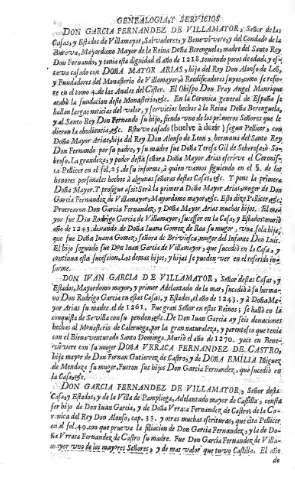 GENEALOGIA, Y SERVICIOS
DON GARCIA FERNANDEZ DE VILLAMAYOR, Señor de las
Casas, y Estados de Villamayor, Salvadores, y Benavivere, y del Condado de la
Bureva, Mayordomo Mayor de la Reina Doña Berenguela, madre del Santo Rey
Don Fernando, y tenia esta dignidad el año de 1218. siendo poco de edad, y es-
tava casado con DOÑA MAYOR ARIAS, hija del Rey Don Alonso de Leon,
y Fundadores del Monasterio de Villamayor, y Reedificadores suyos, como se refie-
re en el tomo 4. de los Anales del Cister. El Obispo Don Fray Angel Manrique
acabò la fundacion deste Monasterio, &c. En la Coronica general de España se
hallan largas noticias del valor, y servicios hechos à la Reina Doña Berenguela,
y al Santo Rey Don Fernando su hijo, siendo uno de los primeros Señores que le
dieron la obediencia, &c. Estava casado (buelve à dezir) segun Pellicer, con
Doña Mayor Arias, hija del Rey Don Alonso de Leon, hermana del Santo Rey
Don Fernando por su padre, y su madre fue Doña Teresa Gil de
La grandeza, y poder desta señora Doña Mayor Arias escrive el Coronis-
ta Pellicer en el fol. de su informe, à quien vamos siguiendo en el §. de los
honores personales hechos à algunas señoras destas Casas, &c. Y pone la primera
Doña Mayor. Y prosigue assi: Serà la primera Doña Mayor Arias, muger de Don
Garcia Fernandez de Villamayor, Mayordomo mayor, &c. Esto dize Pellicer, &c.
Procrearon Don Garcia Fernandez, y Doña Mayor Arias muchos hijos. El mayor
fue Don Rodrigo Garcia de Villamayor, sucessor en la Casa, y Estados; murió
año de 1243. dexando de Doña Juana Gomez de Roa su muger, una sola hija,
que fue Doña Juana Gomez, señora de Berlanga, muger del Infante Don Luis.
El hijo segundo fue Don Juan Garcia de Villamayor, que sucediò en la Casa, y
continuò esta sucession. Los demas hijos, y hijas se pueden ver en el referido in-
forme.
DON IVAN GARCIA DE VILLAMAYOR, Señor destas Casas, y
Estados, Mayordomo mayor, y primer Adelantado de la mar, sucediò à su herma-
no Don Rodrigo Garcia en estas Casas, y Estados, el año de 1243. y à Doña Ma-
yor Arias su madre el de 1262. Fue gran Señor en estos Reinos; se hallò en la
conquista de Sevilla con su pendon, &c. De Don Juan Garcia ay seis donaciones
hechas al Monasterio de Caleruega, por la gran naturaleza, y parentesco que tenia
con el Bienaventurado Santo Domingo. Muriò el año de 1270. yaze en Bene-
vivere con su muger DOÑA VRRACA FERNANDEZ DE CASTRO,
hija mayor de Don Fernan Gutierrez de Castro, y de DOÑA EMILIA Iñiguez
de Mendoza su muger. Fueron sus hijos Don Garcia Fernandez, que sucediò en
la Casa, &c.
DON GARCIA FERNANDEZ DE VILLAMAYOR, Señor desta
Casa, y Estados, y de la Villa de Pampliega, Adelantado mayor de Castilla, consta
ser hijo de Don Juan Garcia, y de Doña Vrraca Fernandez de Castro, de la Co-
ronica del Rey Don Alonso, cap. 25. y otras muchas escrituras, que cita Pellicer
en el fol. 49. con que prueva la filiacion de Don Garcia Fernandez, y
Doña Vrraca Fernandez de Castro su madre. Fue Don Garcia Fernandez de Villa-
mayor uno de los mayores Señores, y de mas valor que tuvo Castilla. El año
de